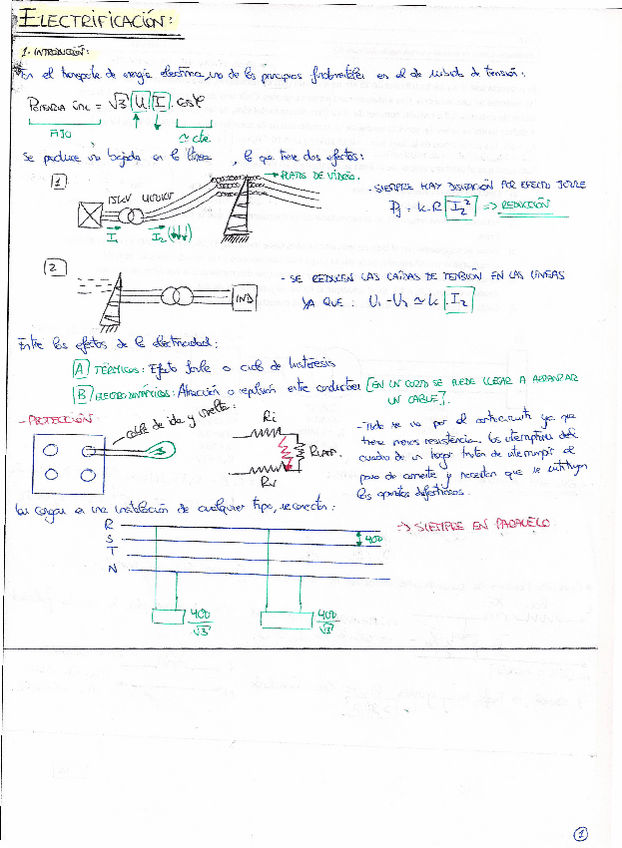 ELECTRIFICACIÓN:
1- INTRODUCCIÓN:
En el transporte de energía eléctrica, uno de los principios fundamentales es el de subida de tensión:
POTENCIA = √3 U I cosφ
FIJO
≃ cte
Se produce una bajada en la línea, lo que tiene dos efectos:
1
PLATOS DE VIDRIO.
15KV 400KV
I I₂(↓↓↓)
- SIEMPRE HAY DISIPACIÓN POR EFECTO JOULE
Pj = k·R I₂² => REDUCCIÓN
2
IND
- SE REDUCEN LAS CAÍDAS DE TENSIÓN EN LAS LÍNEAS
YA QUE: U₁-U₂ ≃ k I₂
Entre los efectos de la electricidad:
A TÉRMICOS: Efecto Joule o ciclo de histéresis
B ELECTRODINÁMICOS: Atracción o repulsión entre conductores [EN UN CORTO SE PUEDE LLEGAR A ARRANCAR
UN CABLE].
- PROTECCIÓN:
cable de ida y vuelta:
Ri
Rv
- Todo se va por el cortocircuito ya que
tiene menos resistencia. Los interruptores del
cuadro de un hogar tratan de interrumpir el
paso de corriente y necesitan que se sustituyan
los aparatos defectuosos.
Las cargas en una instalación de cualquier tipo, se conectan:
=> SIEMPRE EN PARALELO
R
S
T
N
400
400/√3
400/√3
1